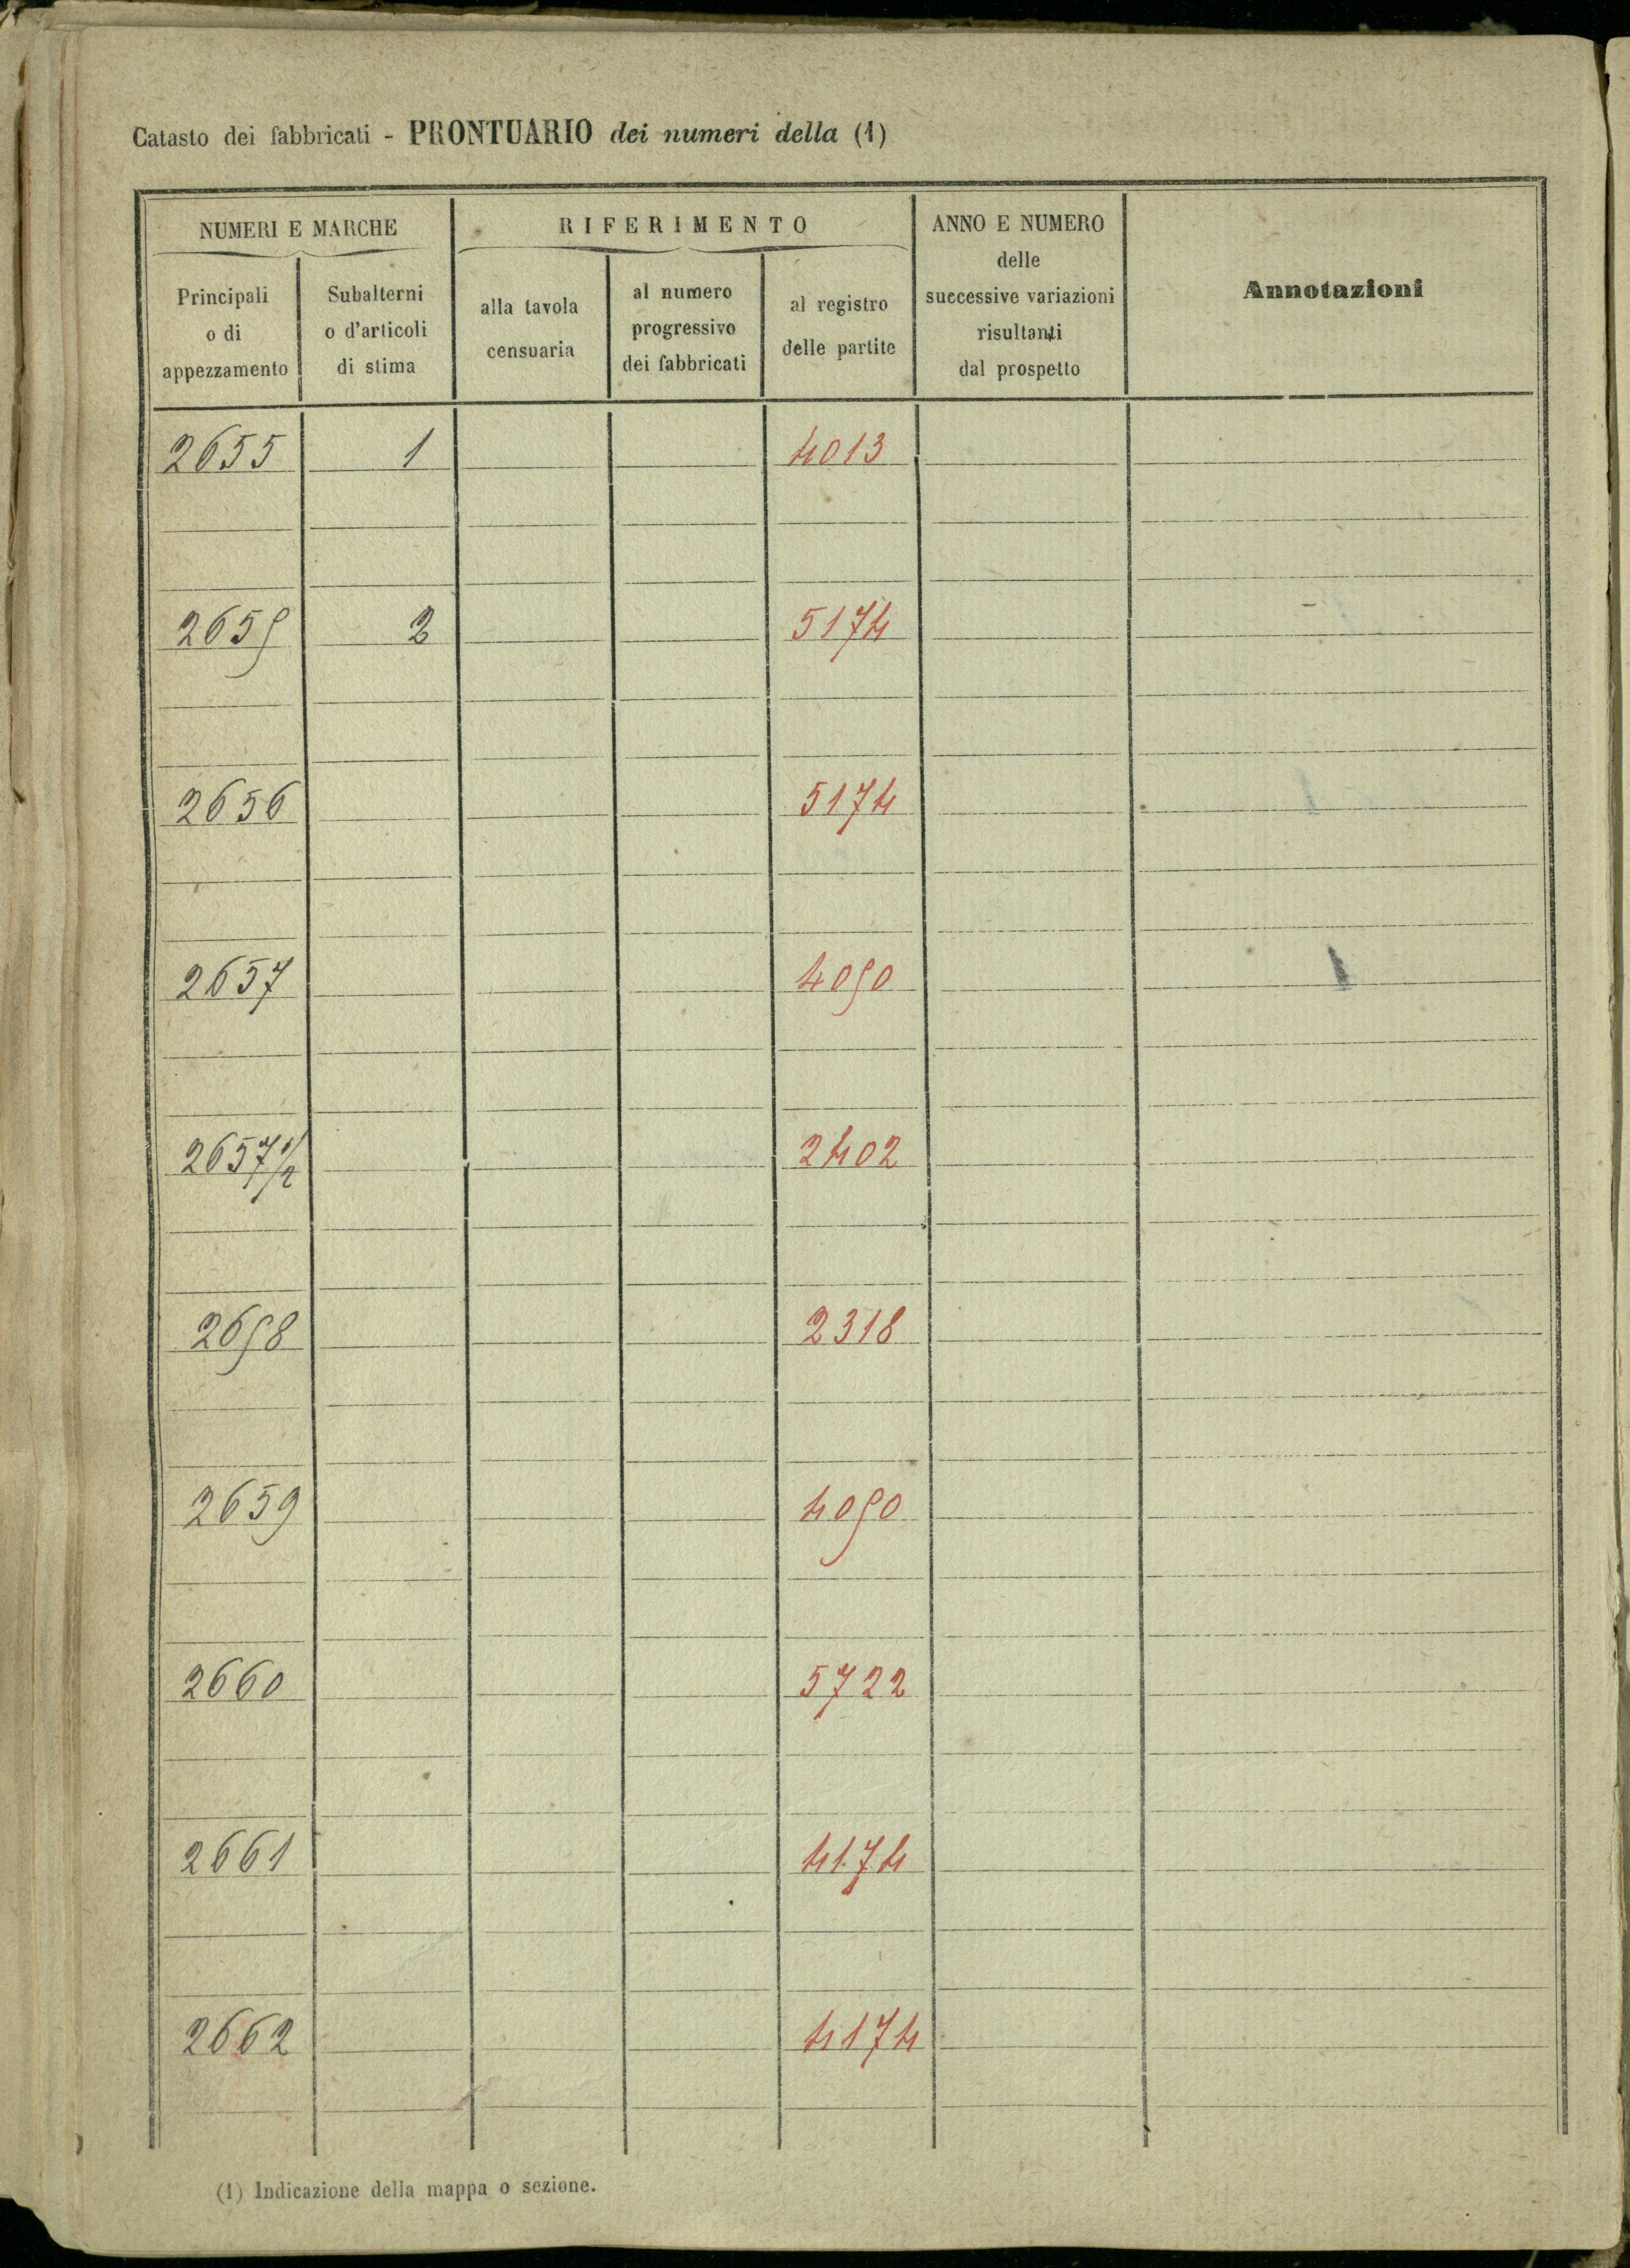 Catasto dei fabbricati - PRONTUARIO dei numeri della (1)
NUMERI E MARCHE
RIFERIMENTO
ANNO E NUMERO
delle
successive variazioni
risultanti
dal prospetto
Annotazioni
Principali
o di
appezzamento
Subalterni
o d'articoli
di stima
alla tavola
censuaria
al numero
progressivo
dei fabbricati
al registro
delle partite
2655 1 4013
2655 2 5174
2656 5174
2657 4050
2657 1/2 2402
2658 2318
2659 4050
2660 5722
2661 4174
2662 4174
(1) Indicazione della mappa o sezione.